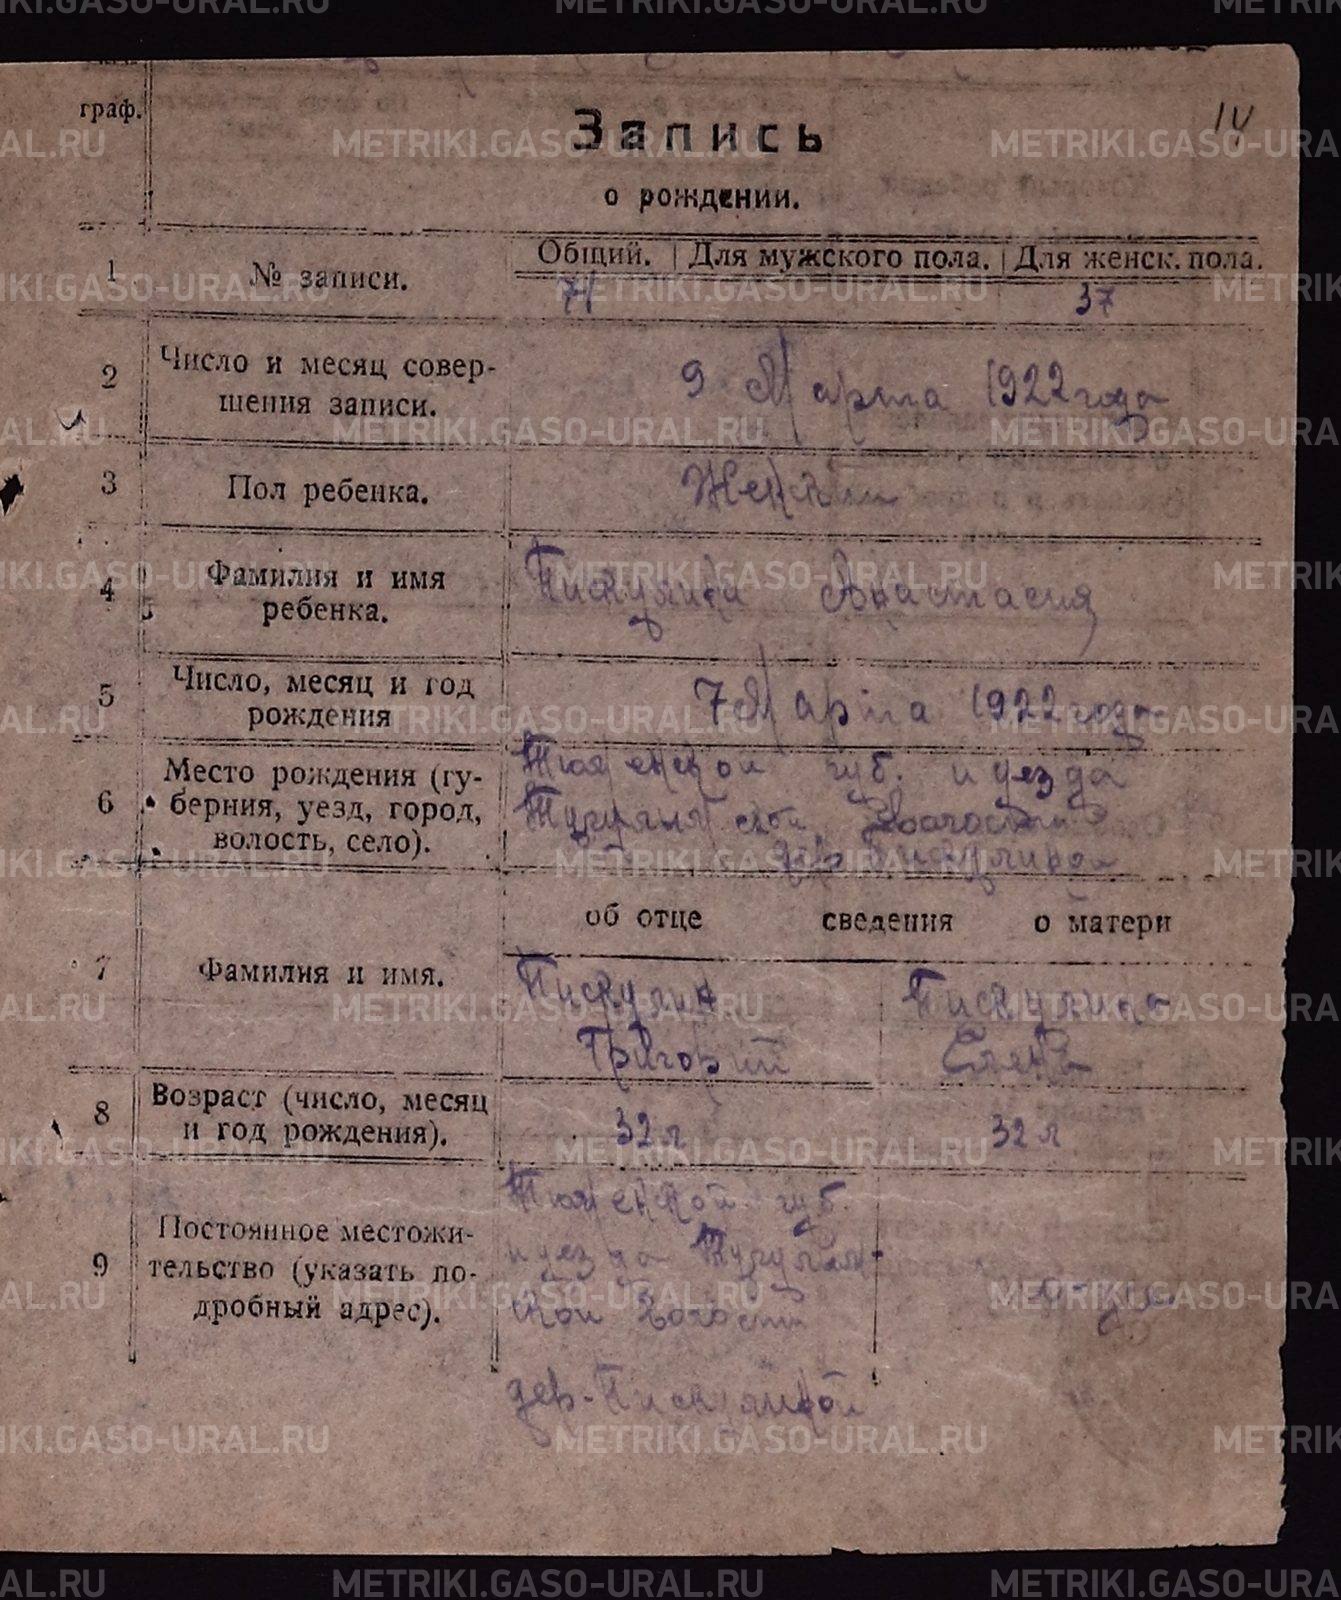 граф.
14
Запись
о рождении.
1
№ записи.
Общий. Для мужского пола. Для женск. пола.
71 37
2
Число и месяц совер-
шения записи.
9 Марта 1922 года
3
Пол ребенка.
Женский
4
Фамилия и имя
ребенка.
Пискулина Анастасия
5
Число, месяц и год
рождения
7 Марта 1922 года
6
Место рождения (гу-
берния, уезд, город,
волость, село).
Тюменской губ. и уезда
Тугулымской Волости
дер Пискулиной
об отце сведения о матери
7
Фамилия и имя.
Пискулин
Григорий
Пискулина
Елена
8
Возраст (число, месяц
и год рождения).
32 л
32 л
9
Постоянное местожи-
тельство (указать по-
дробный адрес).
Тюменской губ.
и уезда Тугулым-
ской Волости
дер. Пискулиной
METRIKI.GASO-URAL.RU